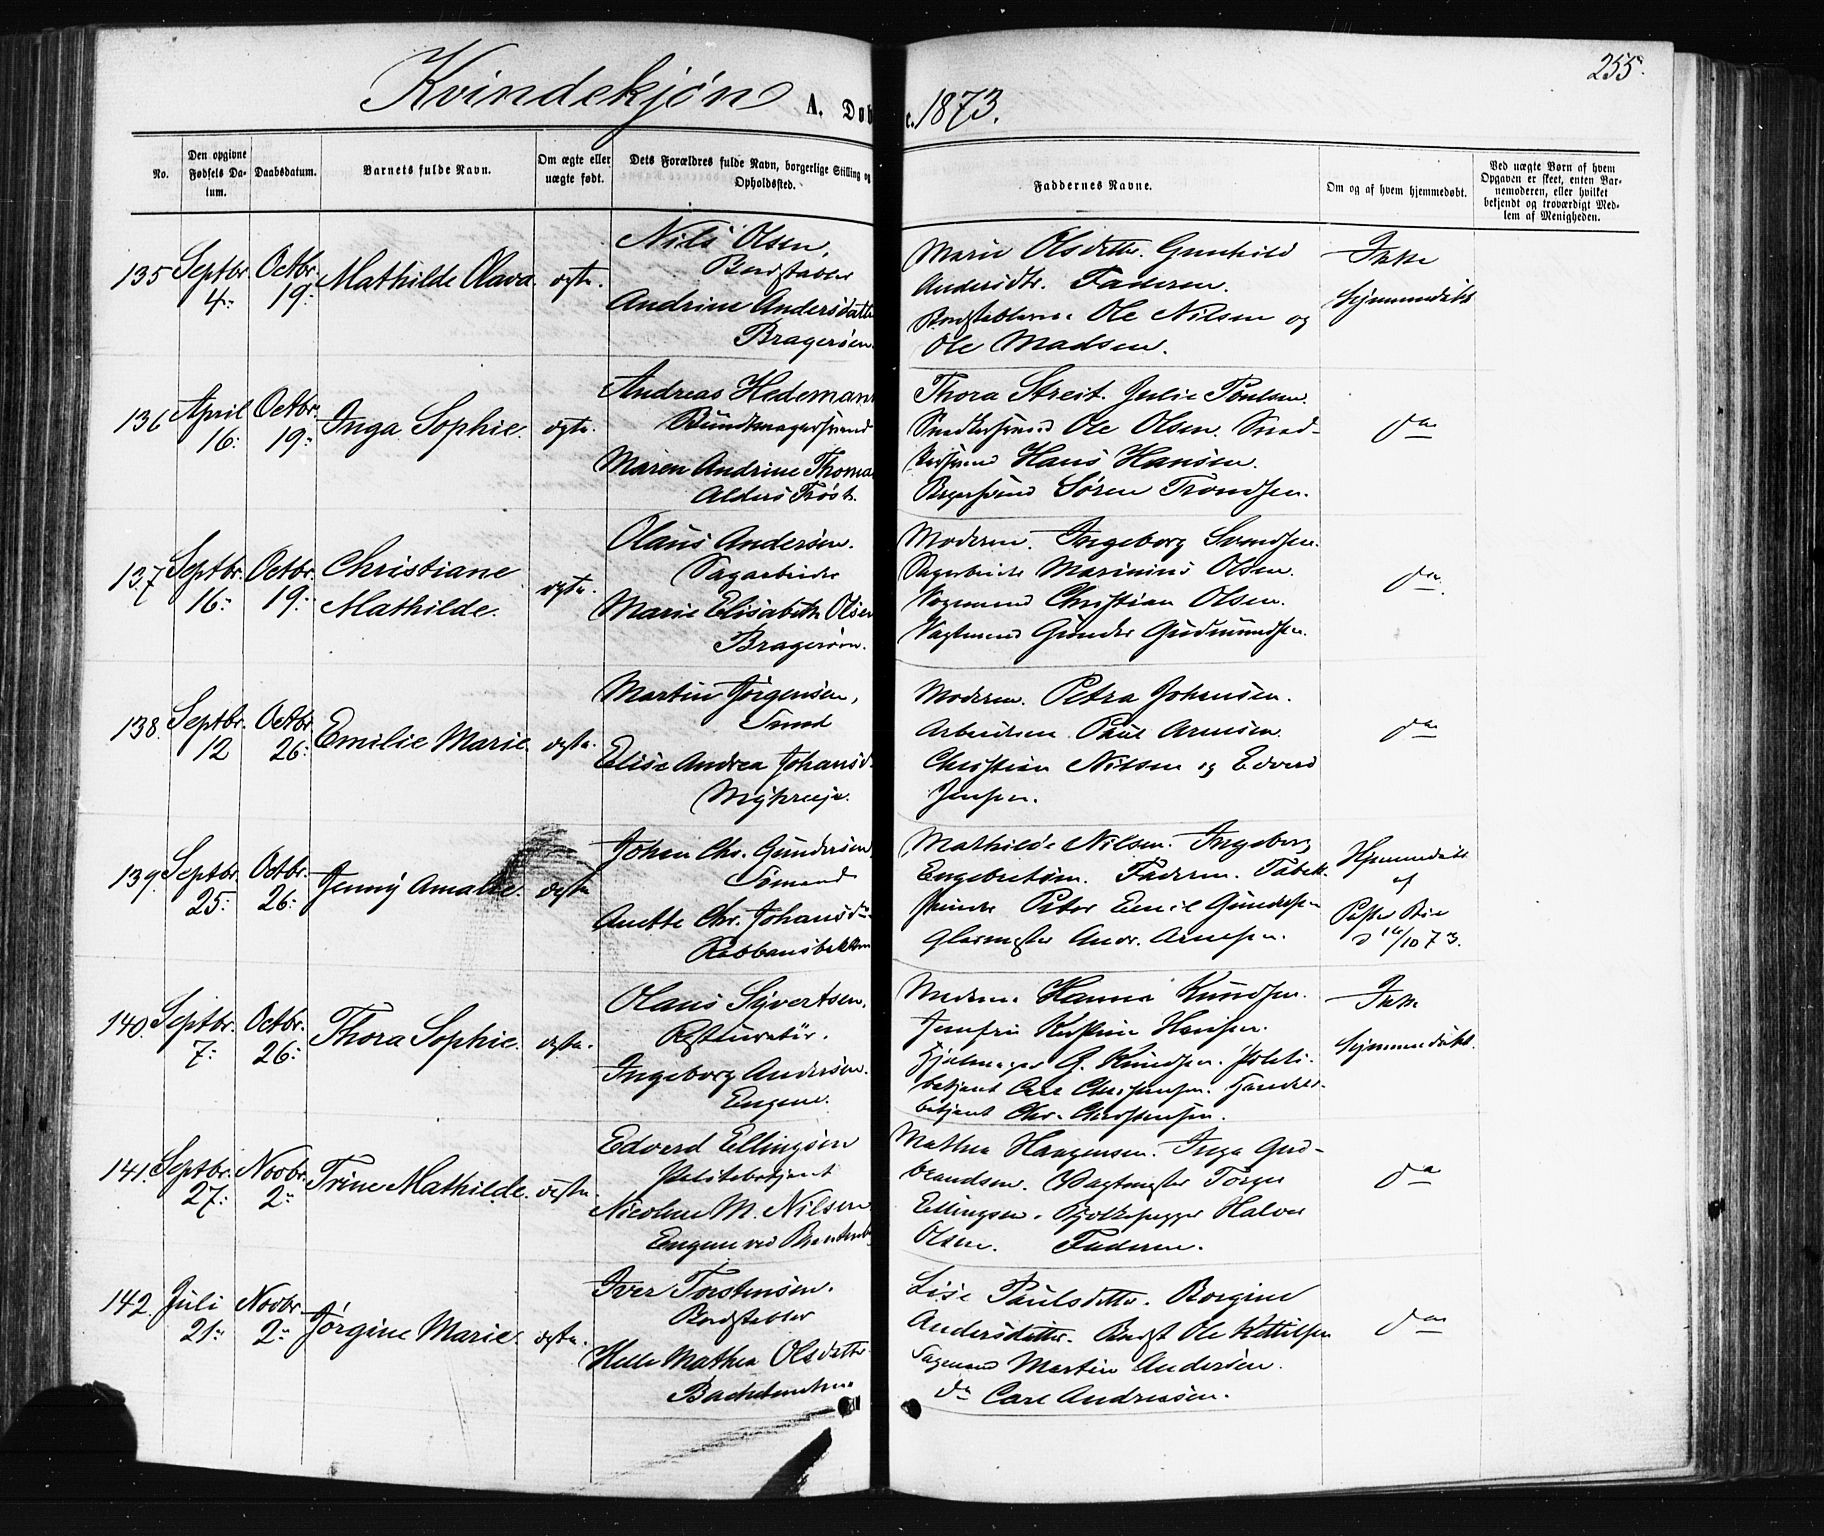 255.
Kvindekjøn A. Døb
e. 1873.
No.
Den opgivne Fødsels Datum.
Daabsdatum.
Barnets fulde Navn.
Om ægte eller uægte født.
Dets Forældres fulde Navn, borgerlige Stilling og Opholdssted.
Faddernes Navne.
Om og af hvem hjemmedøbt.
Ved uægte Børn af hvem Opgaven er skeet, enten Barnemoderen, eller hvilket bekjendt og troværdigt Medlem af Menigheden.
135 Septbr. 4. Octbr. 19. Mathilde Olava. ægte.
Nils Olsen,
Bordstabler
Andrine Andersdatt
Bragerøen.
Marie Olsdatter. Gunhild
Andersdtr. Faderen.
Bordstablerne Ole Nilsen og
Ole Madsen.
Ikke
hjemmedøbt
136 April 16. Octbr. 19. Inga Sophie. ægte.
Andreas Hedeman
Bundtmagersvend
Maren Andrine Thoma
Alders Trøst.
Thora Streit. Julie Poulsen.
Snedkersvend Ole Olsen. Sned-
kersvend Hans Hansen.
Bagersvend Søren Trondsen.
do
137 Septbr. 16. Octbr. 19. Christiane
Mathilde. ægte.
Olaus Andersen.
Sagarbeider
Marie Elisabeth Olsen
Bragerøen.
Moderen. Ingeborg Svendsen.
Sagarbeider Marinius Olsen.
Vognmand Christian Olsen.
Vagtmand Gunder Gudmundsen.
do
138. Septbr. 12 Octbr. 26. Emilie Marie. ægte.
Martin Jørgensen,
Smed
Elise Andrea Johansd.
Moderen. Petra Johansen.
Arbeiderne Paul Arnesen.
Christian Nilsen og Edvard
Jensen.
do
139. Septbr. 25. Octbr. 26. Jenny Amalie. ægte
Johan Chr. Gundersen,
Sømand
Anette Chr. Johansd.
Mathilde Nilsen. Ingeborg
Engebretsen. Faderen.
Peter Emil Gundersen
Glarmester Andr. Arnesen.
Hjemmedøbt
af
140. Septbr. 7. Octbr. 26. Thora Sophie. ægte.
Olaus Syvertsen,
Restauratør.
Ingeborg Andersen.
Engene.
Moderen. Hanna Knudsen.
Jomfru Kristine Hansen.
G. Knudsen. Politi-
betjent Carl Christensen. Handels-
betjent Chr. Christensen.
Ikke
hjemmedøbt.
141. Septbr. 27. Novbr. 2. Trine Mathilde. ægte.
Edvard Ellingsen
Politibetjent
Nicoline M. Nilsen
Engene ved
Mathea Haagensen. Inga Gud-
brandsen. Vagtmester Torger
Ellingsen. Halvor
Olsen. Faderen.
do
142. Juli 21. Novbr. 2. Jørgine Marie. ægte.
Iver Torstensen.
Bordstabler
Helle Mathea Olsdatter.
Lise Paulsdatter. Borgine
Andersdatter. Bordst. Ole Kittilsen
Sagmand Martin Andersen.
do Carl Andreasen.
do